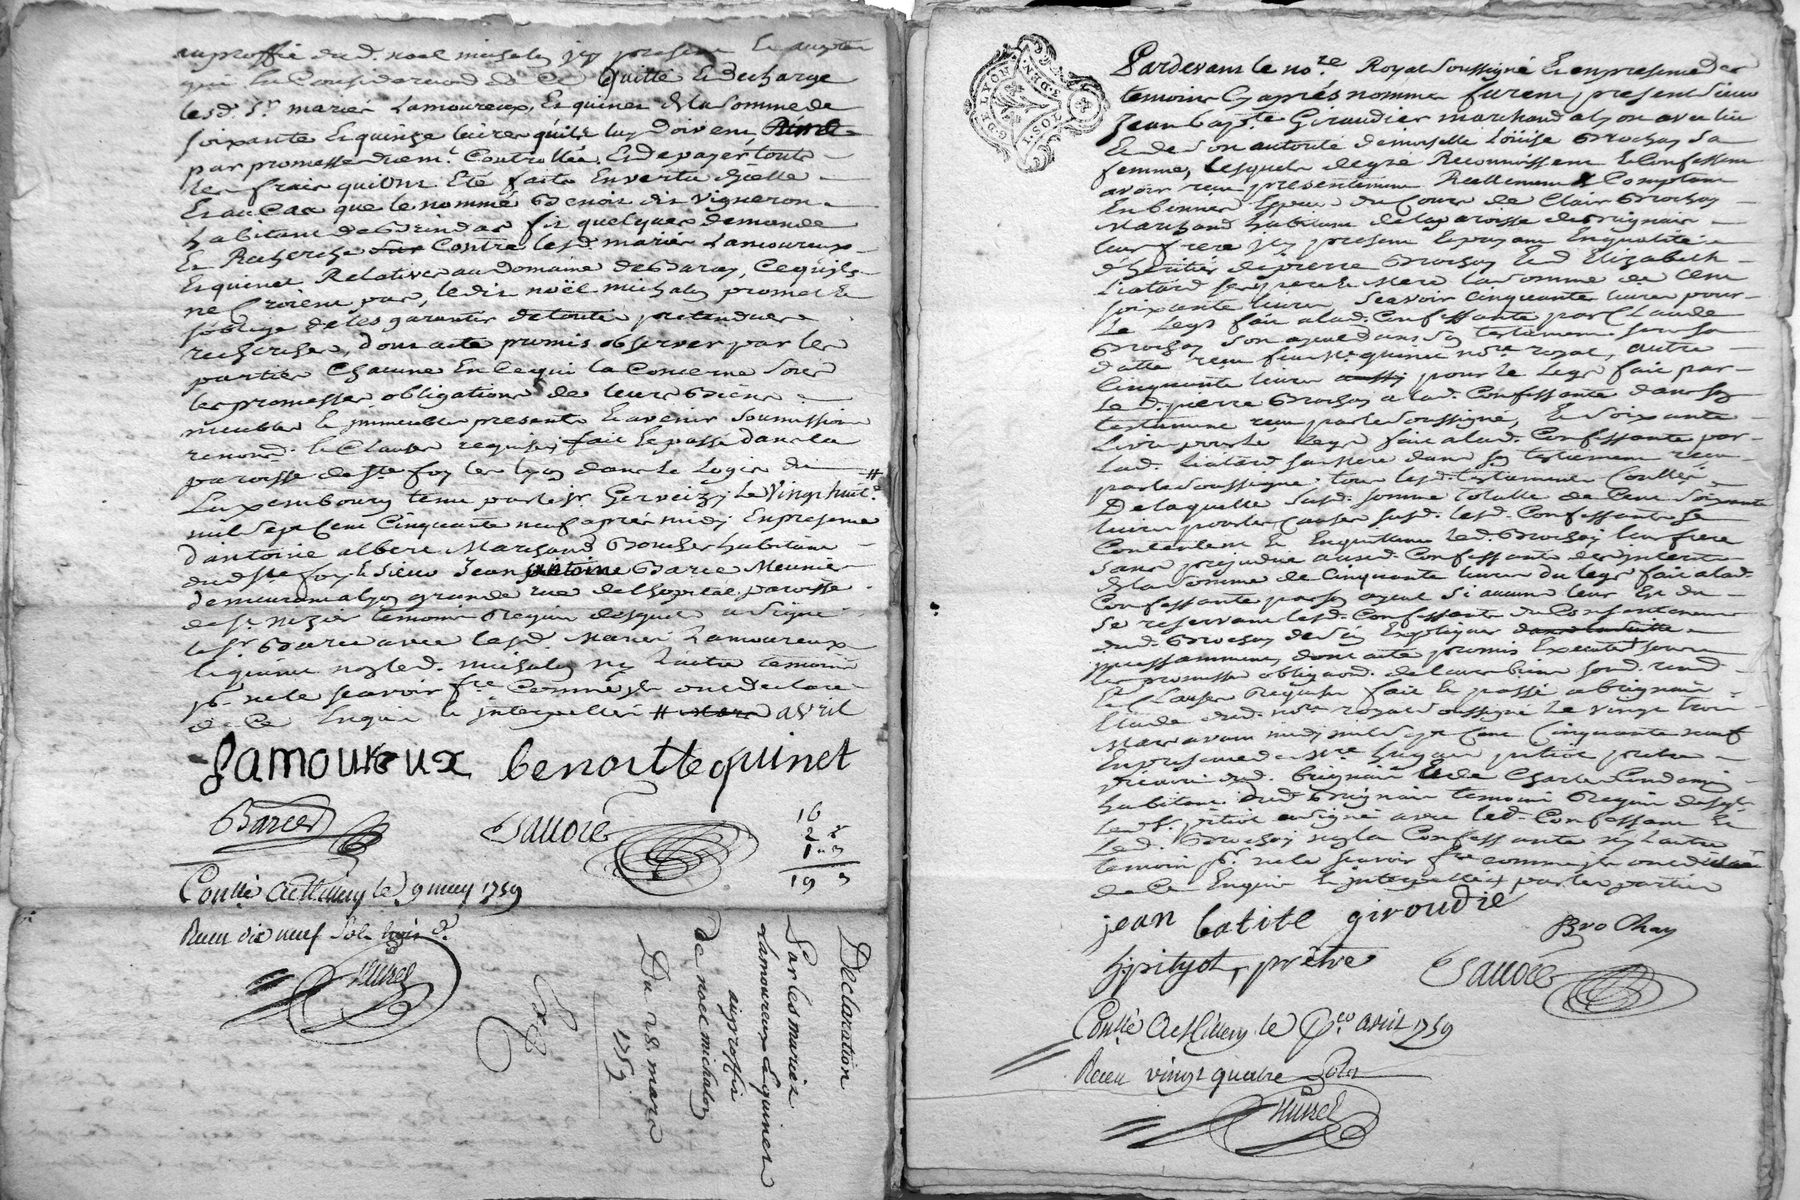 auproffit dud. noel michalon icy present Et acceptant
qui En Consideration de Ce quitte Et decharge
lesd. Srs. mariés Lamoureux, Et quinet de la somme de
soixante Et quinze livres quils luy doivent
par promesse Controllée, Et de payer touts
les frais quiont Eté faits En vertu dicelle
Et au Cas que le nommé Benoit dit vigneron
habitant de Brindas fit quelques demande
Et Recherche Contre lesd. mariés Lamoureux
Et quinet Relatives au Domaine de Baray, Ce quils
ne Croient pas, ledit noël michalon promet Et
soblige de les garantir de toute pretendue
recherches, dont acte promis observer par les
parties Chacune En Ce qui la Concerne sous
les promesses obligations de leurs Biens
meubles Et immeubles presents Et avenir soumissions
renond. Et Clauses requises, fait Et passé dans la
paroisse de Ste foy les lyon dans le Logis du
Luxembourg tenu par le sr. Le vingt huit #
mil sept Cent Cinquante neuf aprés midy En presence
d'antoine albert Marchand Boucher habitant
dud. Ste foy Et sieur Jean antoine Barce Meunier
demeurant a lyon grande rue de lhopital paroisse
de st. nizier temoins Requis desquels a signé
le sr. Barce avec lesd. Mariés Lamoureux
Et quinet non led. michalon ny L'autre temoin
pr. ne le scavoir fre Comme ils ont declaré
de Ce Enquis Et interpellés # avril
Lamoureux benoitte quinet
Barce Saurre
16
2 2
1 " 3
19 3
Conllé a le 9 may 1759
Receu dix neuf sols trois d.
Declaration
Par les mariés
Lamoureux Et quinet
auproffit
De noel michalon
Du 28 mars
1759
Exp.
G. DE LYON
Pardevant le nore. Royal soussigné Et en presence des
temoins Cy aprés nommés furent present sieur
Jean Bapte. Giraudier marchand a lyon avec luy
Et de son autorité demoiselle Loüise Brochay sa
femme, Lesquels de gré Reconnoissent Et Confessent
avoir reçu presentement Reellement Et Comptant
En bonnes Especes du Cours de Clair Brochay
Marchand habitant de la paroisse de Brignais
leur frere icy present Et payant En qualité
d'heritier de pierre Brochay Et d'Elizabeth
Liatard ses pere Et Mere la somme de Cent
soixante livres, scavoir Cinquante livres pour
Le Legs fait a lad. Confessante par Claude
Brochay son ayeul dans son testament sous sa
datte reçu feu Me quinet nore royal, autre
Cinquante livres pour le Legs fait par
Led. pierre Brochay a lad. Confessante dans son
testament reçu par le soussigné, Et soixante
livres pour le Legs fait a lad. Confessante par
Lad. Liatard sa mere dans son testament reçu
par le soussigné, tous lesd. testaments Conllés
De laquelle susd. somme totalle de Cent soixante
livres pour les Causes susd. lesd. Confessants se
Contentent Et En quittent led. Brochay leur frere
sans prejudice ausd. Confessants des interets
de la somme de Cinquante livres du legs fait a lad.
Confessante par son ayeul si aucuns leur Est du
Se reservant lesd. Confessants du Consentement
dud. Brochay de s'en Expliquer
incessamment, dont acte promis Executer sous
les promesses obligaons. de leurs biens soud. renond.
Et Clauses Requises fait Et passé a brignais
Etude dud. nore royal soussigné le vingt trois
Mars avant midy mil sept Cent Cinquante neuf
En presence de Mre petiot pretre
vicaire dud. brignais Et de Charles Condamin
habitant dud. Brignais temoins Requis desqls.
led. Sr. petiot a signé avec led. Confessant Et
led. Brochay non la Confessante ny L'autre
temoin pr. ne le scavoir fre comme ils ont declaré
de Ce Enquis Et interpellés par les parties
jean batite giroudie
Bro Chay
petiot, prêtre
Saurre
Conllé a le Per avril 1759
Receu vingt quatre sols